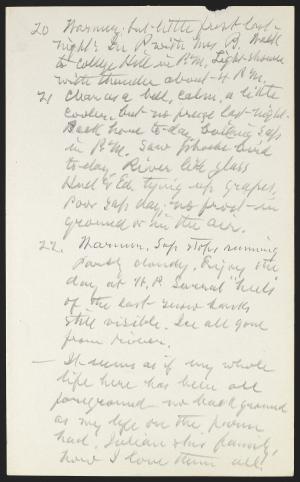 20 Warmer, but little frost last
night. In P. with Mrs B. Walk
to College Hill in P.M. Light shower
with thunder about 4 P.M.
21 Clear as a bell, calm, a little
cooler but no freeze last night.
Back home to-day, boiling sap
in P.M. Saw phoebe bird
to-day. River like glass
Hud & Ed. tying up grapes,
Poor sap day; no frost in
ground or in the air.
22. Warmer. Sap stops running
Partly cloudy. Enjoy the
day at W.P. Several heels
of the last snow banks
still visible. Ice all gone
from river.
— It seems as if my whole
life here has been all
foreground—no background
as my life on the farm
had. Julian & his family,
how I love them all!